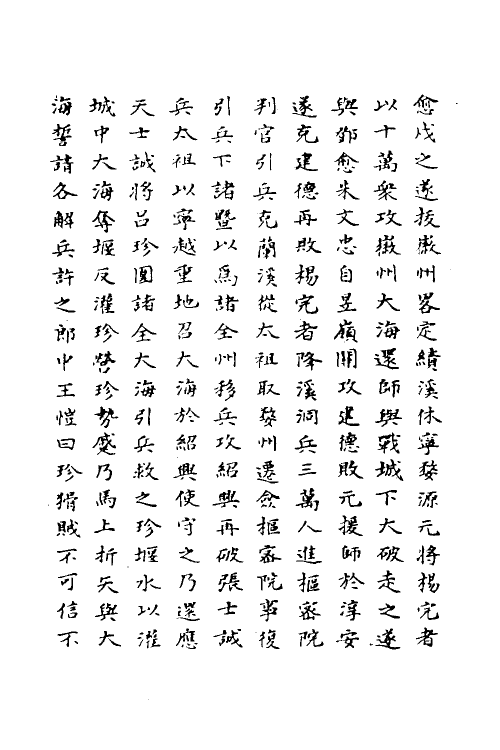 愈戍之遂拔徽州畧定績溪休寧婺源元將楊完者
以十萬衆攻徽州大海還師與戰城下大破走之遂
與鄧愈朱文忠自昱嶺關攻建德敗元援師於淳安
遂克建德再敗楊完者降溪洞兵三萬人進樞密院
判官引兵克蘭溪從太祖取婺州遷僉樞密院事復
引兵下諸暨以為諸全州移兵攻紹興再破張士誠
兵太祖以寧越重地召大海於紹興使守之乃還應
天士誠將呂珍圍諸全大海引兵救之珍堰水以灌
城中大海奪堰反灌珍營珍勢蹙乃馬上折矢與大
海誓請各解兵許之郎中王愷曰珍猾賊不可信不